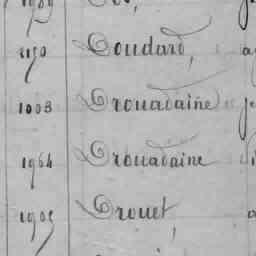 1170 Doudard, a
1003 Drouadaine je
1964 Drouadaine
1905 Drouet, a